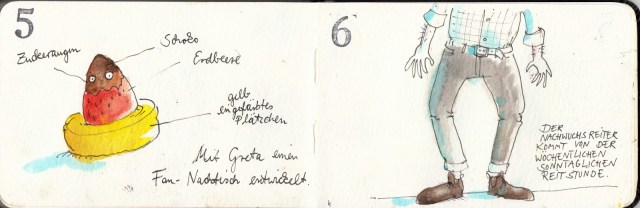 5
Zuckeraugen
Schoko
Erdbeere
gelb
eingefärbtes
Plätzchen
Mit Greta einen
Fan-Nachtisch entwickelt.
6
DER
NACHWUCHSREITER
KOMMT VON DER
WÖCHENTLICHEN
SONNTÄGLICHEN
REITSTUNDE.